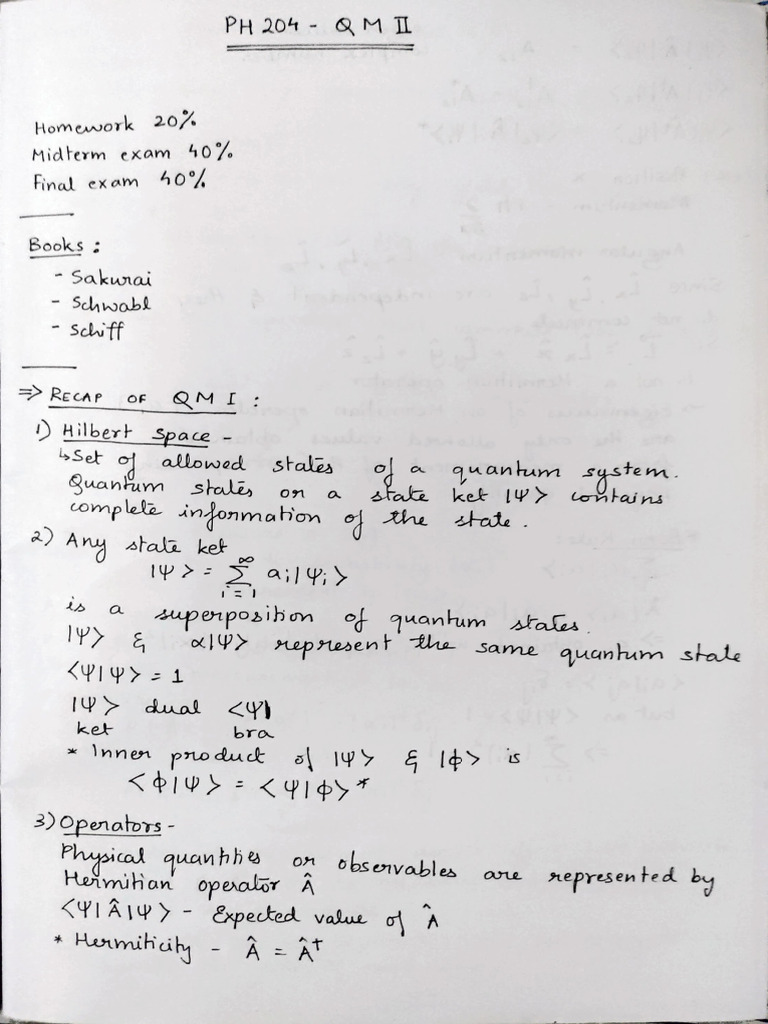 PH 204 - Q M II
Homework 20%
Midterm exam 40%
Final exam 40%
Books :
- Sakurai
- Schwabl
- Schiff
⇒ RECAP OF Q M I :
1) Hilbert space -
↳ Set of allowed states of a quantum system.
Quantum states or a state ket |Ψ> contains
complete information of the state.
2) Any state ket
|Ψ> = ∞ Σ i=1 aᵢ|Ψᵢ>
is a superposition of quantum states.
|Ψ> & α|Ψ> represent the same quantum state
<Ψ|Ψ> = 1
|Ψ> dual <Ψ|
ket bra
* Inner product of |Ψ> & |ϕ> is
<ϕ|Ψ> = <Ψ|ϕ>*
3) Operators -
Physical quantities or observables are represented by
Hermitian operator Â
<Ψ|Â|Ψ> - Expected value of Â
* Hermiticity - Â = Â†